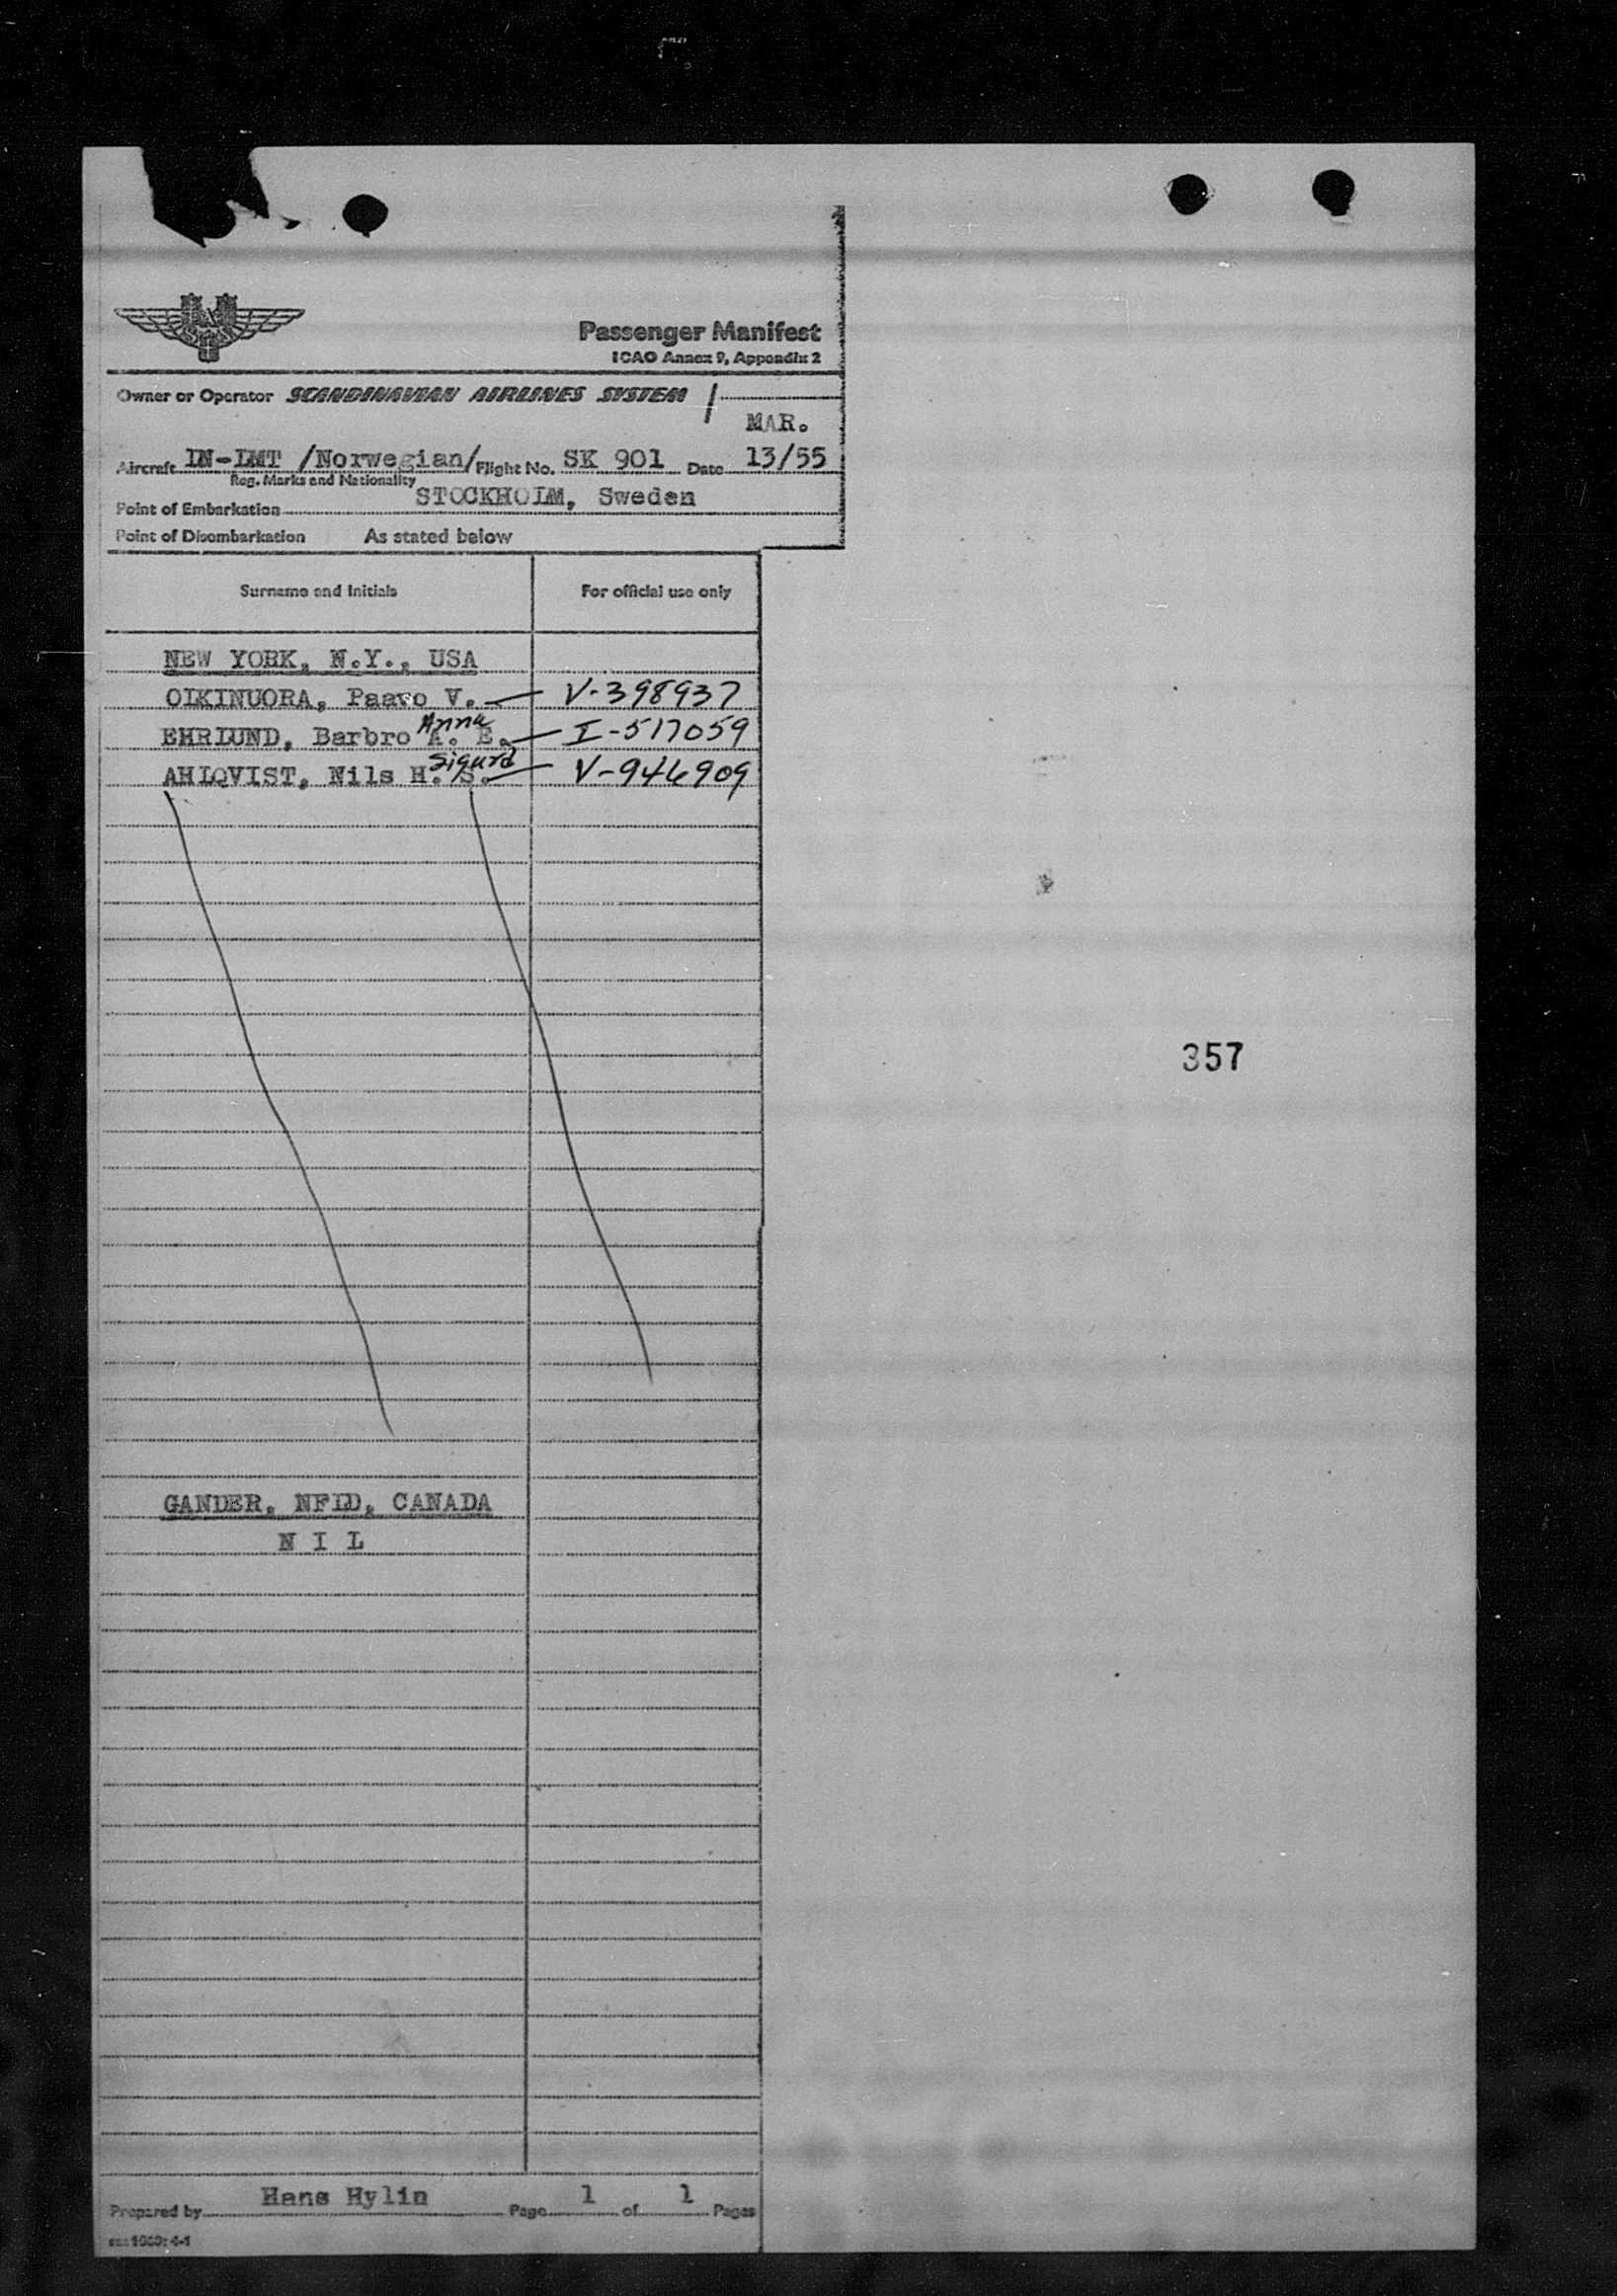 Passenger Manifest
ICAO Annex 9, Appendix 2
Owner or Operator SCANDINAVIAN AIRLINES SYSTEM
MAR.
Aircraft LN-LMT /Norwegian/ Flight No. SK 901 Date 13/55
Reg. Marks and Nationality
Point of Embarkation STOCKHOLM, Sweden
Point of Disembarkation As stated below
Surname and Initials For official use only
NEW YORK, N.Y., USA
OIKINUORA, Paavo V. — V-398937
Anna
EHRLUND, Barbro A. E. — I-517059
Sigurd
AHLQVIST, Nils H. S. — V-946909
357
GANDER, NFLD, CANADA
N I L
Prepared by Hans Hylin Page 1 of 1 Pages